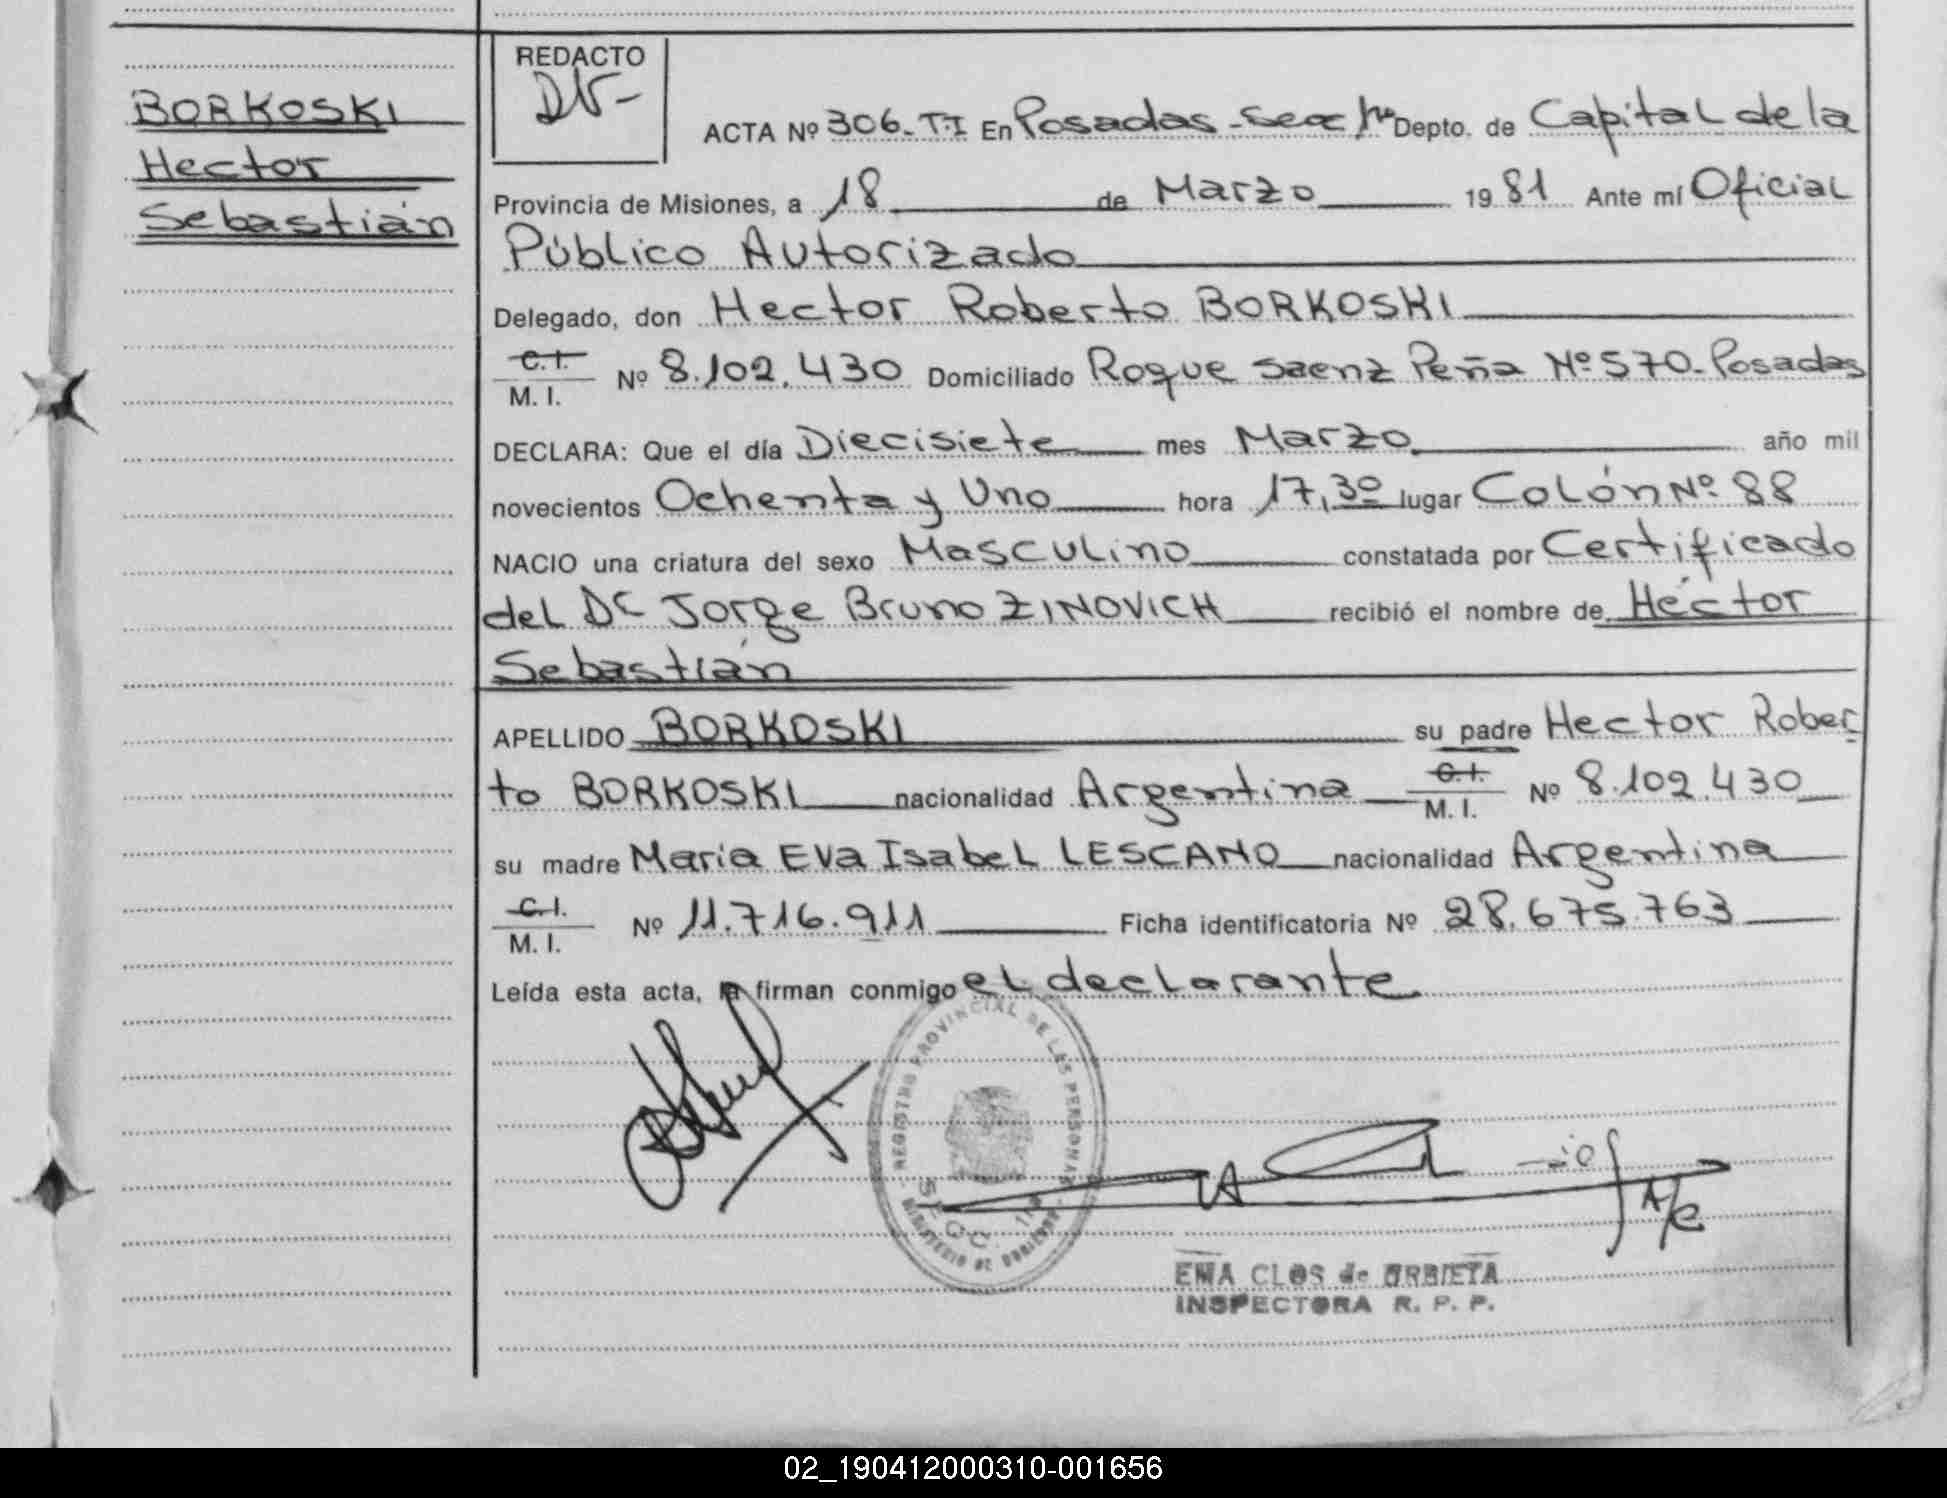 REDACTO
BORKOSKI
Hector
Sebastián
ACTA Nº 306. T.I En Posadas - Secc 1ra Depto. de Capital de la
Provincia de Misiones, a 18 de Marzo 1981 Ante mí Oficial
Público Autorizado
Delegado, don Hector Roberto BORKOSKI
C.I.
M. I. Nº 8.102.430 Domiciliado Roque Saenz Peña Nº 570. Posadas
DECLARA: Que el día Diecisiete mes Marzo año mil
novecientos Ochenta y Uno hora 17,30 lugar Colón Nº 88
NACIO una criatura del sexo Masculino constatada por Certificado
del Dr Jorge Bruno ZINOVICH recibió el nombre de Héctor
Sebastián
APELLIDO BORKOSKI su padre Hector Rober
to BORKOSKI nacionalidad Argentina C.I. M. I. Nº 8.102.430
su madre Maria Eva Isabel LESCANO nacionalidad Argentina
C.I.
M. I. Nº 11.716.911 Ficha identificatoria Nº 28.675.763
Leída esta acta, la firman conmigo el declarante
REGISTRO PROVINCIAL DE LAS PERSONAS
SECC. 1ra
MINISTERIO DE GOBIERNO
EMA CLOS de URBIETA
INSPECTORA R. P. P.
02_190412000310-001656